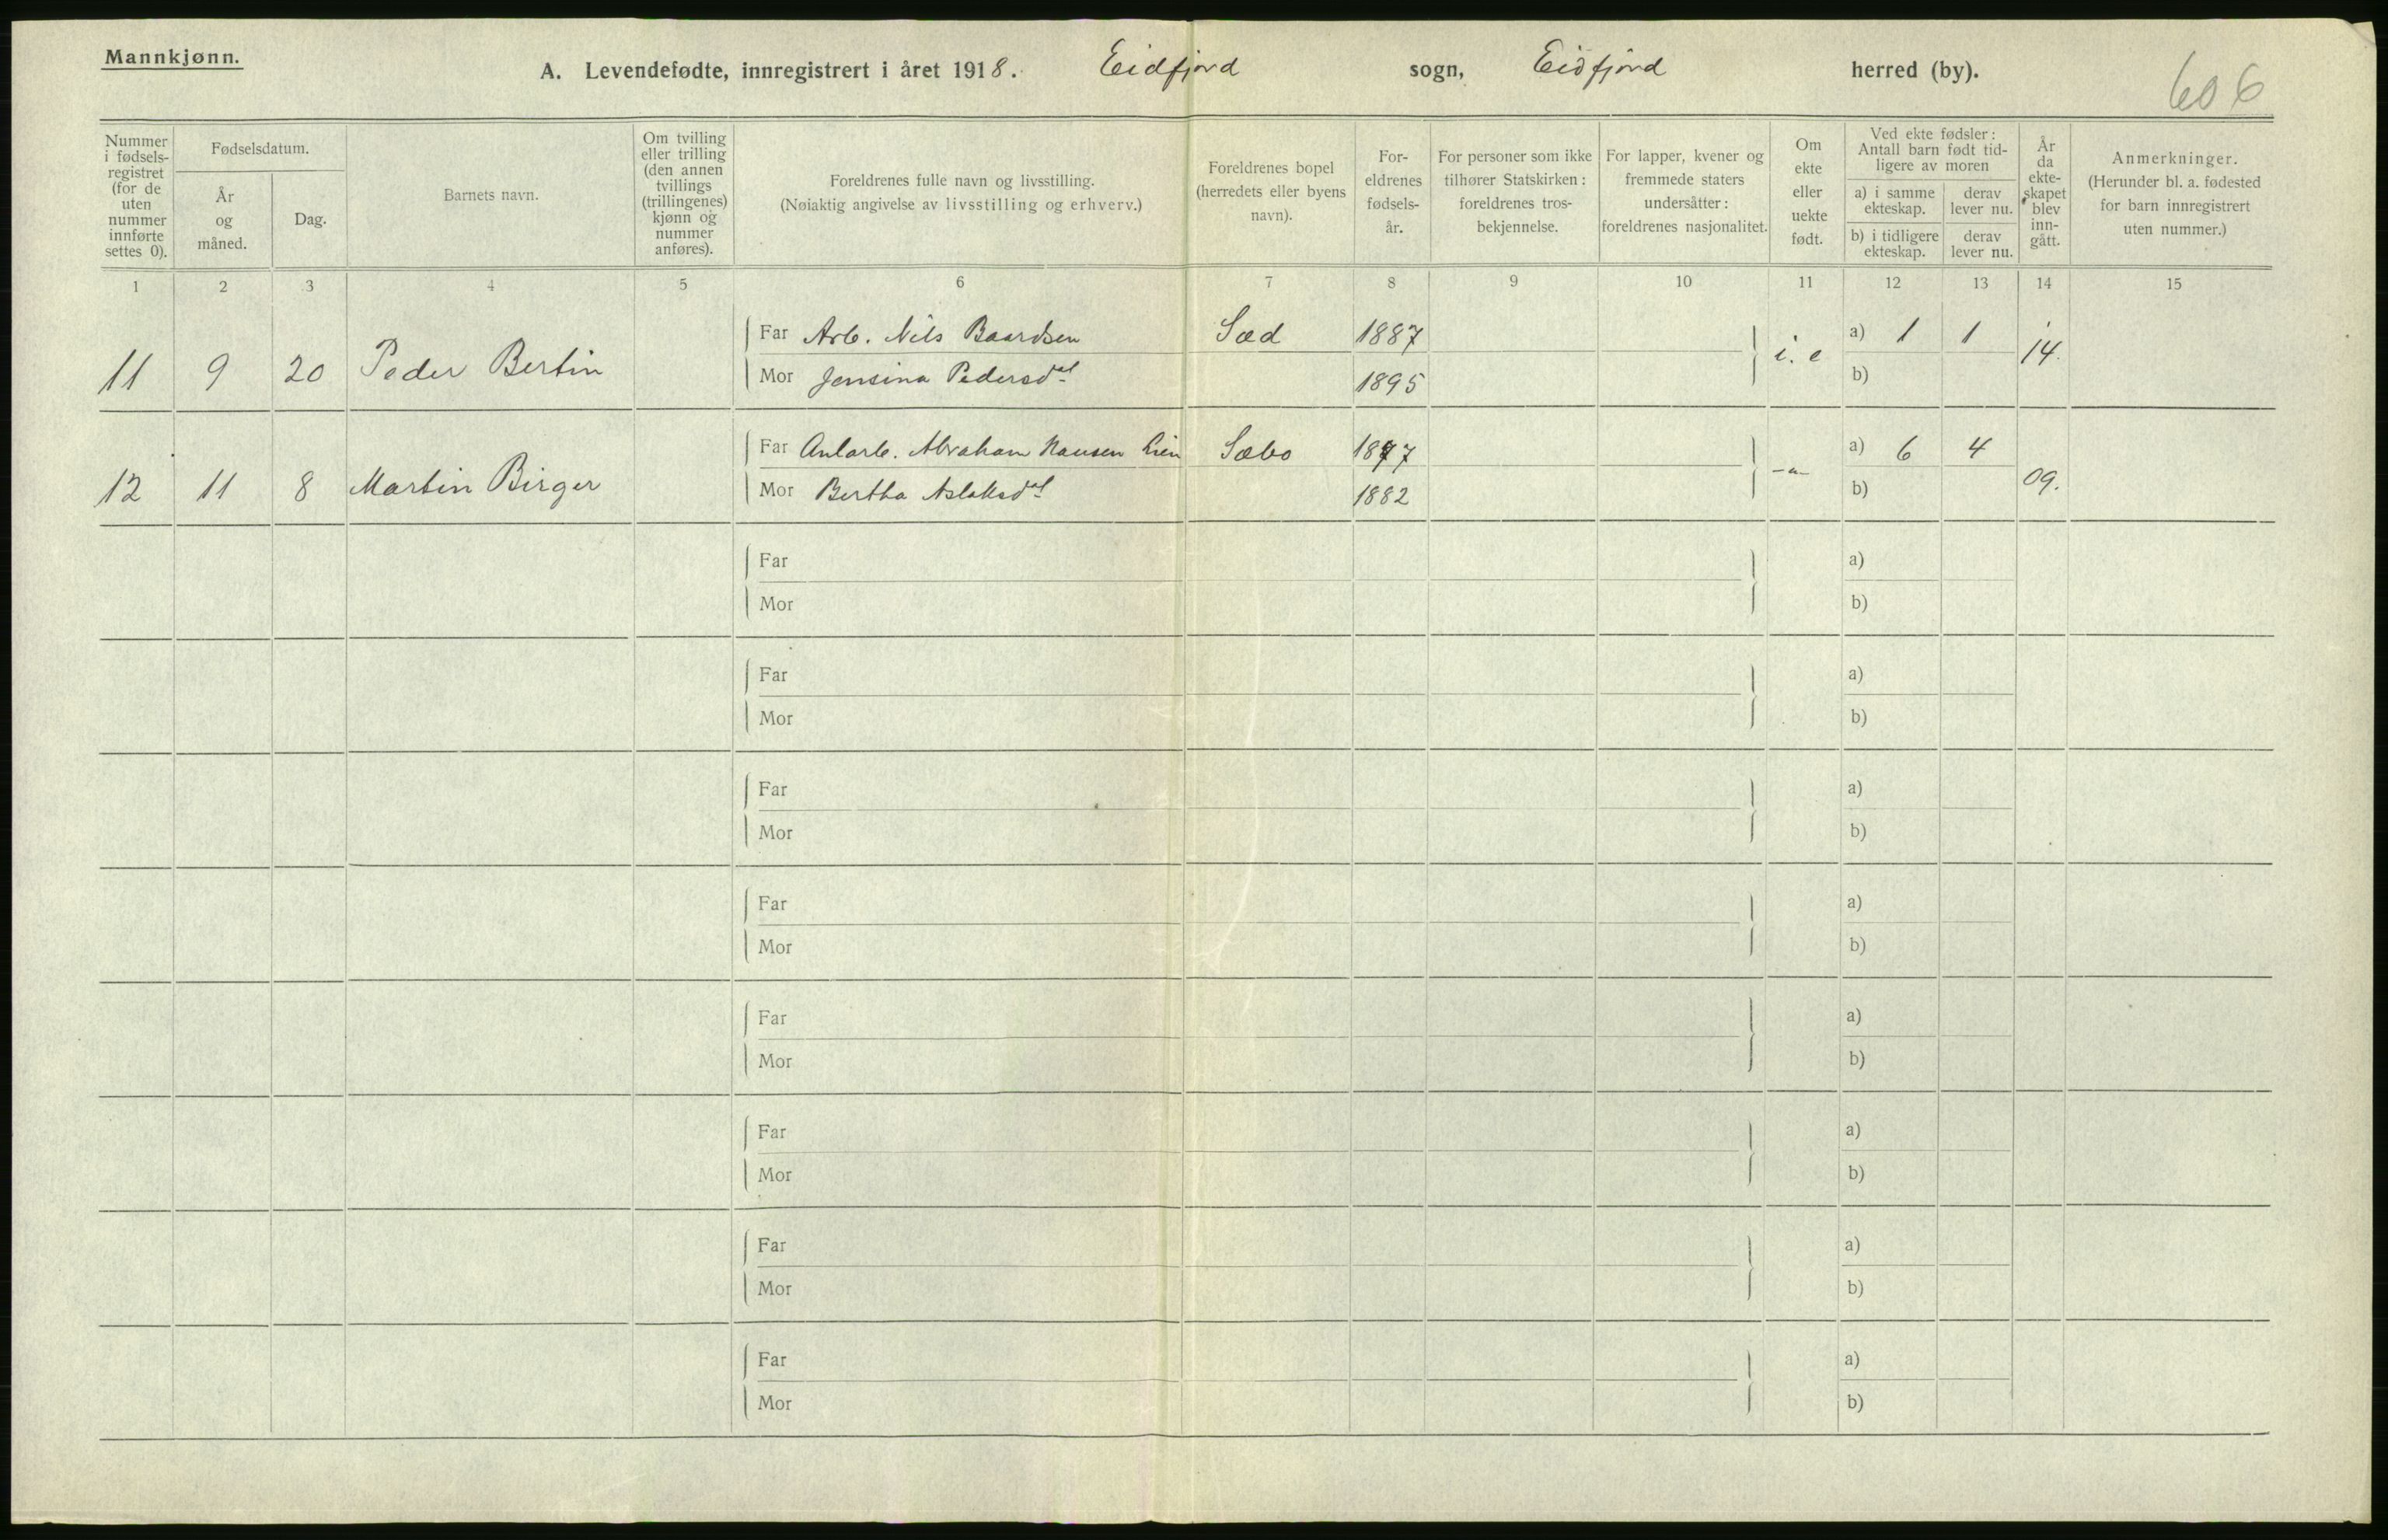 Mannkjønn.
A. Levendefødte, innregistrert i året 1918. Eidfjord sogn, Eidfjord herred (by).
606
Nummer i fødsels-registret (for de uten nummer innførte settes 0).
Fødselsdatum.
År og måned.
Dag.
Barnets navn.
Om tvilling eller trilling (den annen tvillings (trillingenes) kjønn og nummer anføres).
Foreldrenes fulle navn og livsstilling.
(Nøiaktig angivelse av livsstilling og erhverv.)
Foreldrenes bopel (herredets eller byens navn).
For-eldrenes fødsels-år.
For personer som ikke tilhører Statskirken: foreldrenes tros-bekjennelse.
For lapper, kvener og fremmede staters undersåtter: foreldrenes nasjonalitet.
Om ekte eller uekte født.
Ved ekte fødsler: Antall barn født tid-ligere av moren
a) i samme ekteskap.
derav lever nu.
b) i tidligere ekteskap.
derav lever nu.
År da ekte-skapet blev inn-gått.
Anmerkninger.
(Herunder bl. a. fødested for barn innregistrert uten nummer.)
1 2 3 4 5 6 7 8 9 10 11 12 13 14 15
Far Arb. Nils Baardsen Sæd 1887 a) 1 1
11 9 20 Peder Bertin i. e 14.
Mor Jensina Pedersdat 1895 b)
Far Anlarb. Abraham Hansen Lien Sæbo 1877 a) 6 4
12 11 8 Martin Birger -"- 09.
Mor Bertha Aslaksdat 1882 b)
Far a)
Mor b)
Far a)
Mor b)
Far a)
Mor b)
Far a)
Mor b)
Far a)
Mor b)
Far a)
Mor b)
Far a)
Mor b)
Far a)
Mor b)